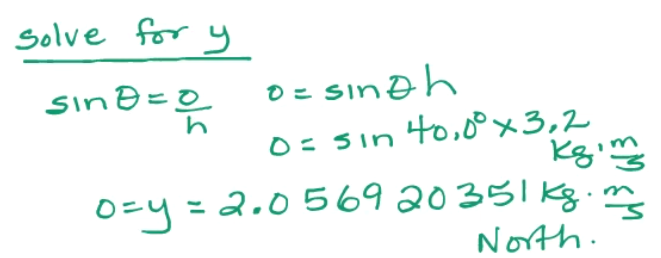 solve for y
sinθ = o/h o = sinθh
o = sin 40.0° × 3.2 kg·m/s
o = y = 2.056920351 kg·m/s
North.